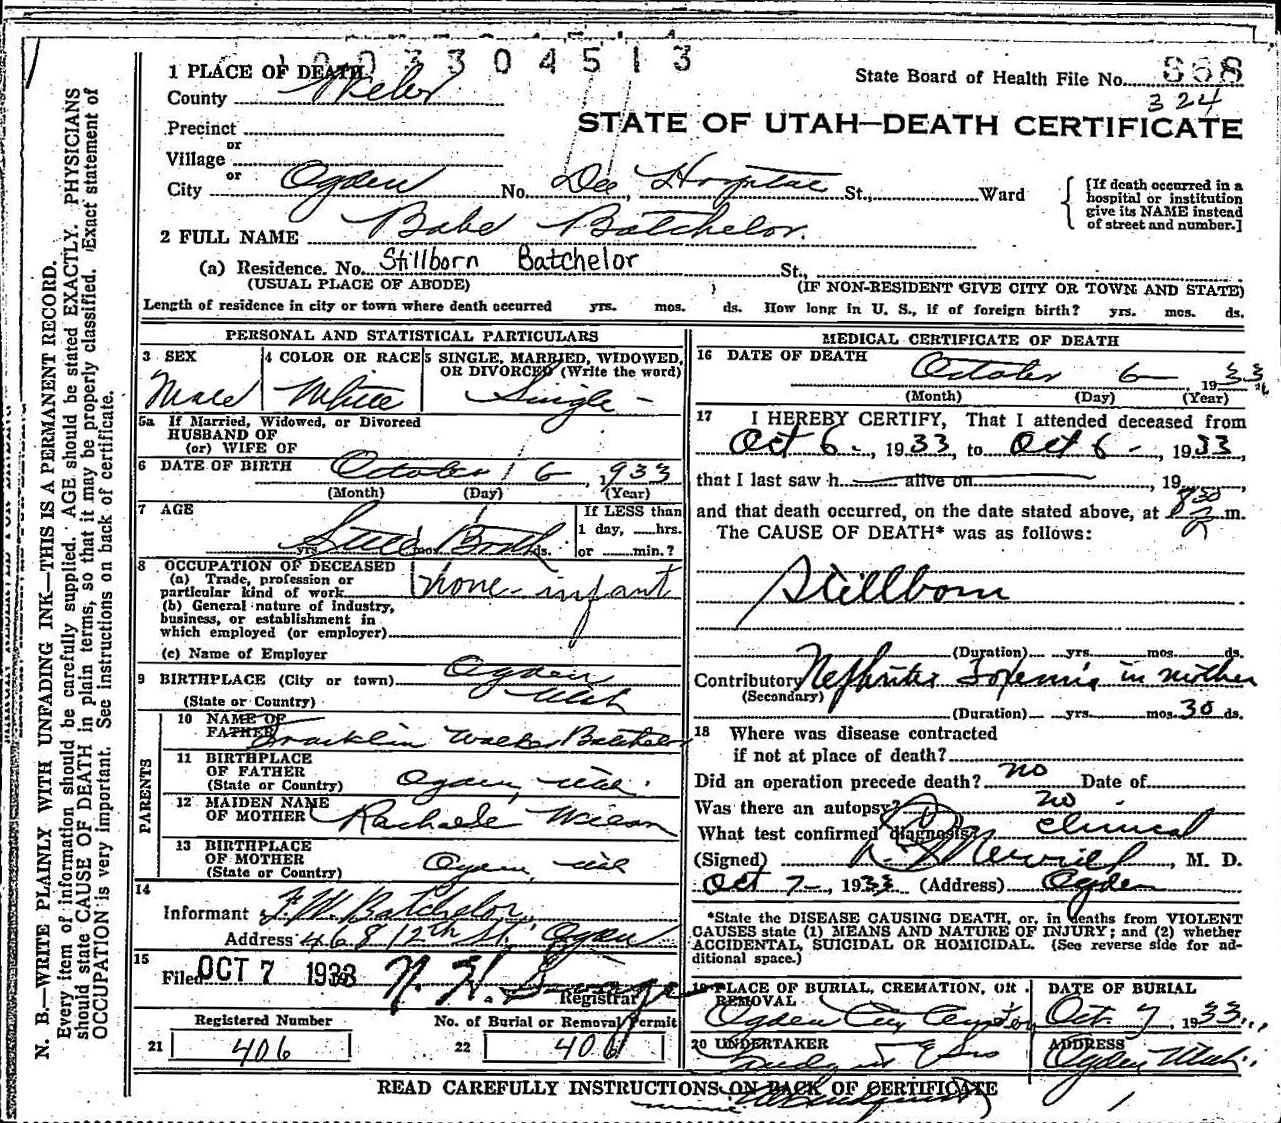 1003304513
1 PLACE OF DEATH
State Board of Health File No. 368
County Weber
324
STATE OF UTAH—DEATH CERTIFICATE
Precinct
or
Village
or
City Ogden No. Dee Hospital St., Ward
[If death occurred in a
hospital or institution
give its NAME instead
of street and number.]
2 FULL NAME Babe Batchelor.
(a) Residence. No. Stillborn Batchelor St.,
(USUAL PLACE OF ABODE) (IF NON-RESIDENT GIVE CITY OR TOWN AND STATE)
Length of residence in city or town where death occurred yrs. mos. ds. How long in U. S., if of foreign birth? yrs. mos. ds.
PERSONAL AND STATISTICAL PARTICULARS
3 SEX 4 COLOR OR RACE 5 SINGLE, MARRIED, WIDOWED,
OR DIVORCED (Write the word)
Male White Single -
5a If Married, Widowed, or Divorced
HUSBAND OF
(or) WIFE OF
6 DATE OF BIRTH October 6 1933
(Month) (Day) (Year)
7 AGE If LESS than
1 day, hrs.
Still Birth
yrs. mos. ds. or min.?
8 OCCUPATION OF DECEASED
(a) Trade, profession or
particular kind of work none - infant
(b) General nature of industry,
business, or establishment in
which employed (or employer)
(c) Name of Employer
9 BIRTHPLACE (City or town) Ogden
(State or Country) Utah
PARENTS
10 NAME OF
FATHER Franklin Walker Batchelor
11 BIRTHPLACE
OF FATHER
(State or Country) Ogden, Utah.
12 MAIDEN NAME
OF MOTHER Wilson
13 BIRTHPLACE
OF MOTHER
(State or Country) Ogden, Utah
14
Informant F. W. Batchelor
Address 468 12th St., Ogden
15
Filed OCT 7 1933
Registrar
Registered Number No. of Burial or Removal Permit
21 406 22 406
MEDICAL CERTIFICATE OF DEATH
16 DATE OF DEATH
October 6 1933
(Month) (Day) (Year)
17 I HEREBY CERTIFY, That I attended deceased from
Oct 6 -, 1933, to Oct 6 -, 1933,
that I last saw h alive on , 19 ,
and that death occurred, on the date stated above, at 830 m.
The CAUSE OF DEATH* was as follows:
Stillborn
(Duration) yrs. mos. ds.
Contributory Nephritis Toxemia in mother
(Secondary)
(Duration) yrs. mos. 30 ds.
18 Where was disease contracted
if not at place of death?
Did an operation precede death? no Date of
Was there an autopsy? no.
What test confirmed diagnosis? clinical
(Signed) Merrill, M. D.
Oct 7-, 1933 (Address) Ogden
*State the DISEASE CAUSING DEATH, or, in deaths from VIOLENT
CAUSES state (1) MEANS AND NATURE OF INJURY; and (2) whether
ACCIDENTAL, SUICIDAL OR HOMICIDAL. (See reverse side for ad-
ditional space.)
19 PLACE OF BURIAL, CREMATION, OR
REMOVAL
Ogden City
DATE OF BURIAL
Oct. 7, 1933
20 UNDERTAKER
ADDRESS
Ogden Utah.
READ CAREFULLY INSTRUCTIONS ON BACK OF CERTIFICATE
N. B.—WRITE PLAINLY WITH UNFADING INK—THIS IS A PERMANENT RECORD.
Every item of information should be carefully supplied. AGE should be stated EXACTLY. PHYSICIANS
should state CAUSE OF DEATH in plain terms, so that it may be properly classified. Exact statement of
OCCUPATION is very important. See instructions on back of certificate.